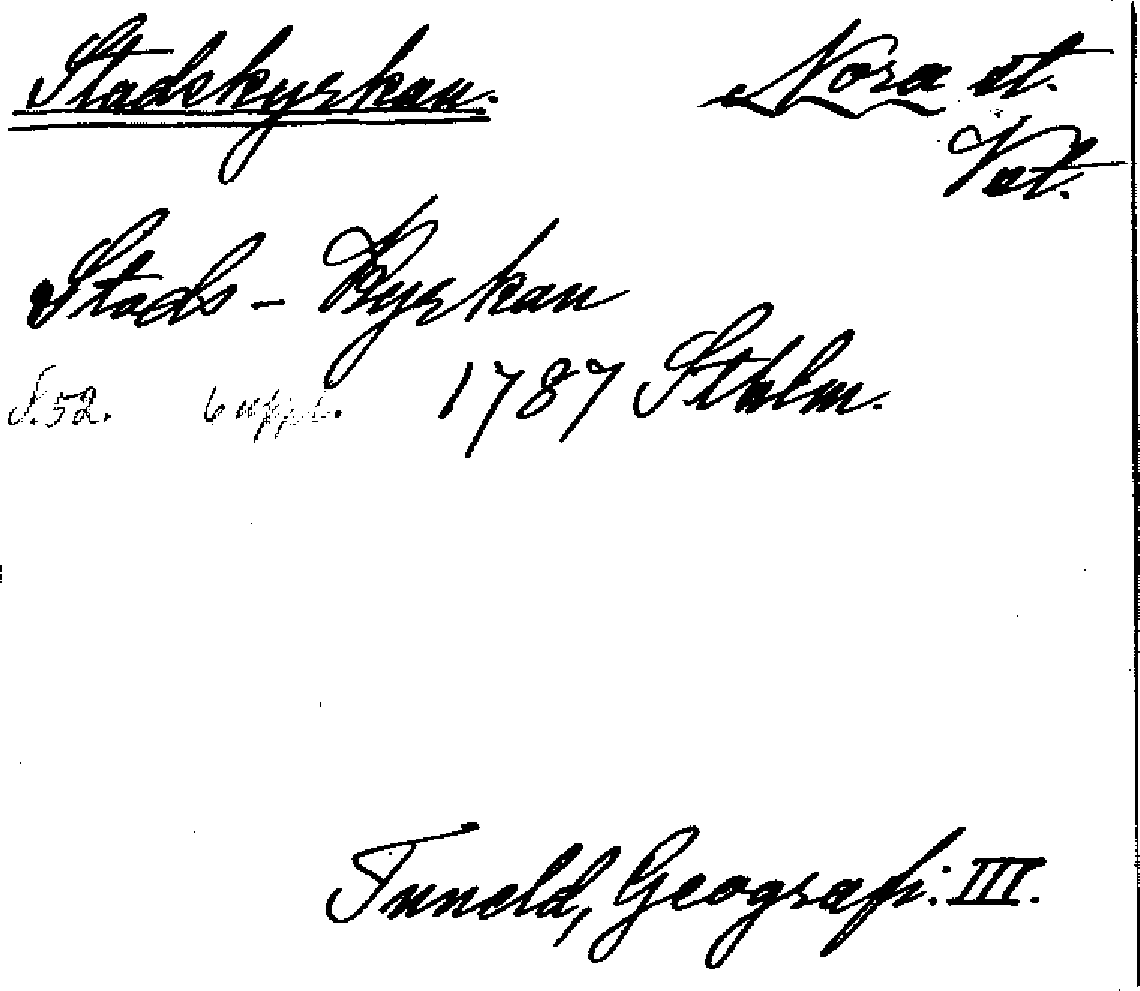 Stadskyrkan. Nora st.
Vst.
Stads-Kyrkan
S. 52. 6 uppl. 1787 Sthlm.
Tuneld, Geografi: III.